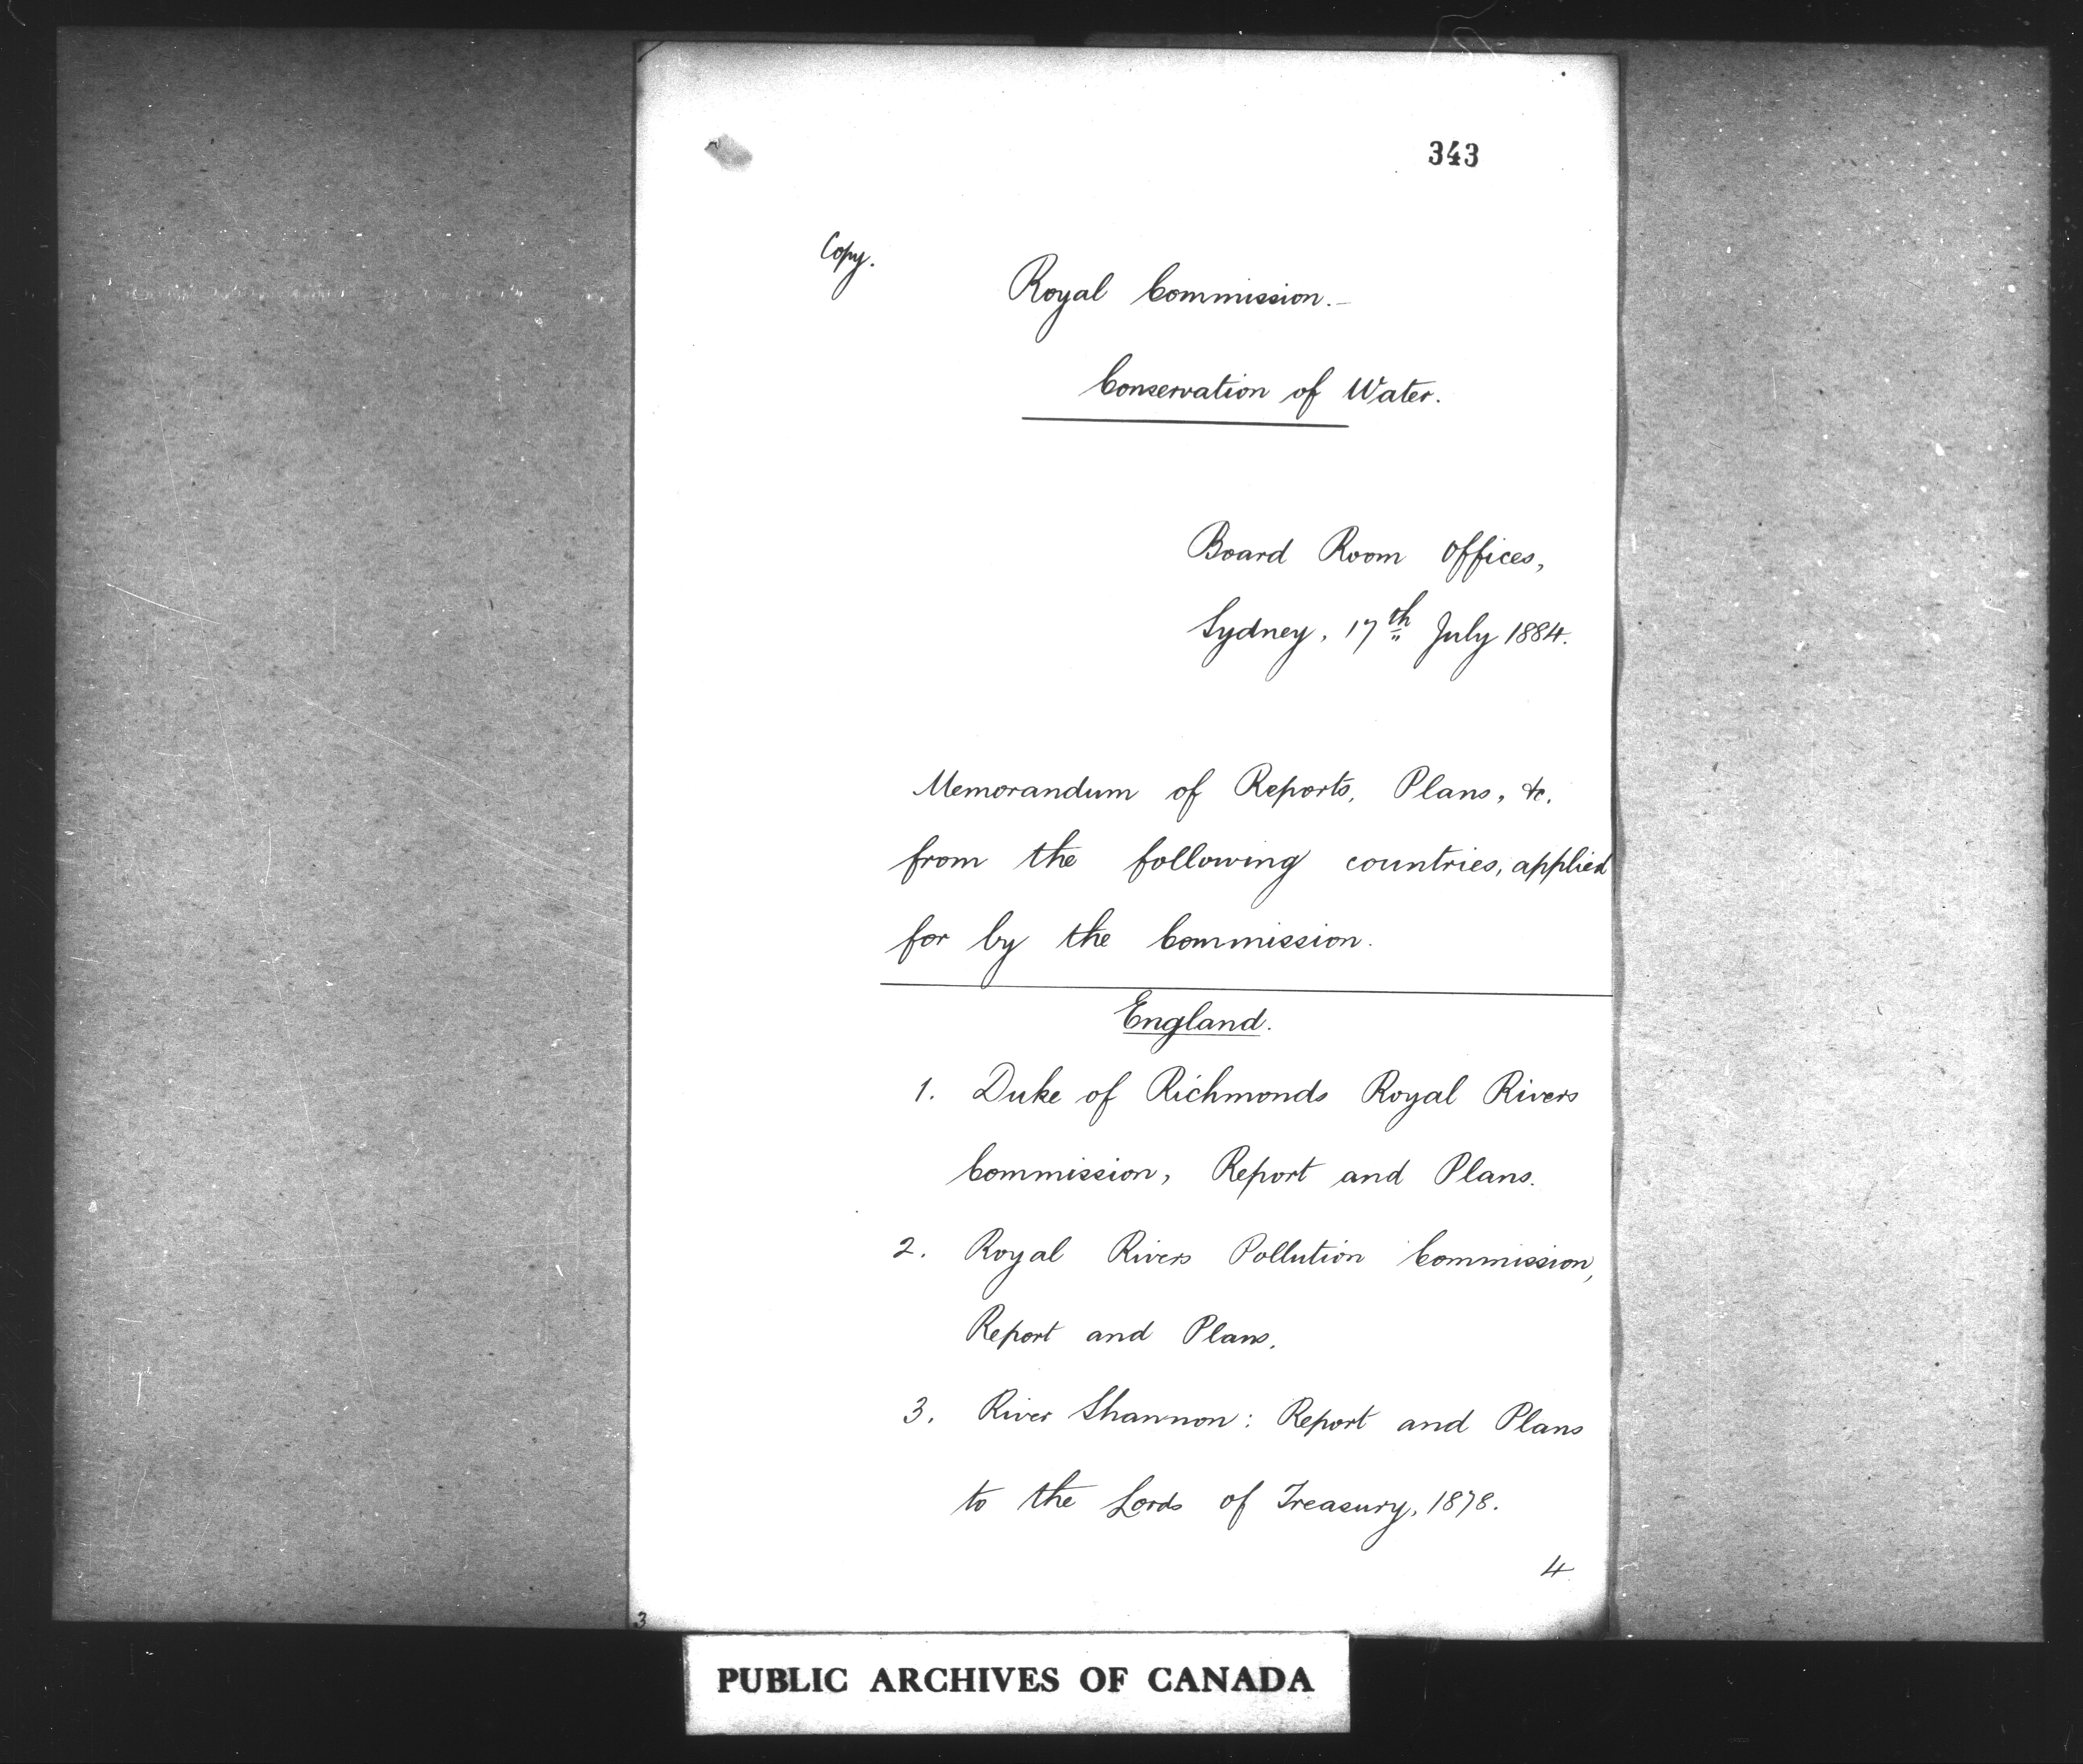 343
Copy.
Royal Commission.—
Conservation of Water.
Board Room Offices,
Sydney, 17th July 1884.
Memorandum of Reports, Plans, &c.
from the following countries, applied
for by the Commission.
England.
1. Duke of Richmonds Royal Rivers
Commission, Report and Plans.
2. Royal Rivers Pollution Commission,
Report and Plans.
3. River Shannon: Report and Plans
to the Lords of Treasury, 1878.
4
3
PUBLIC ARCHIVES OF CANADA